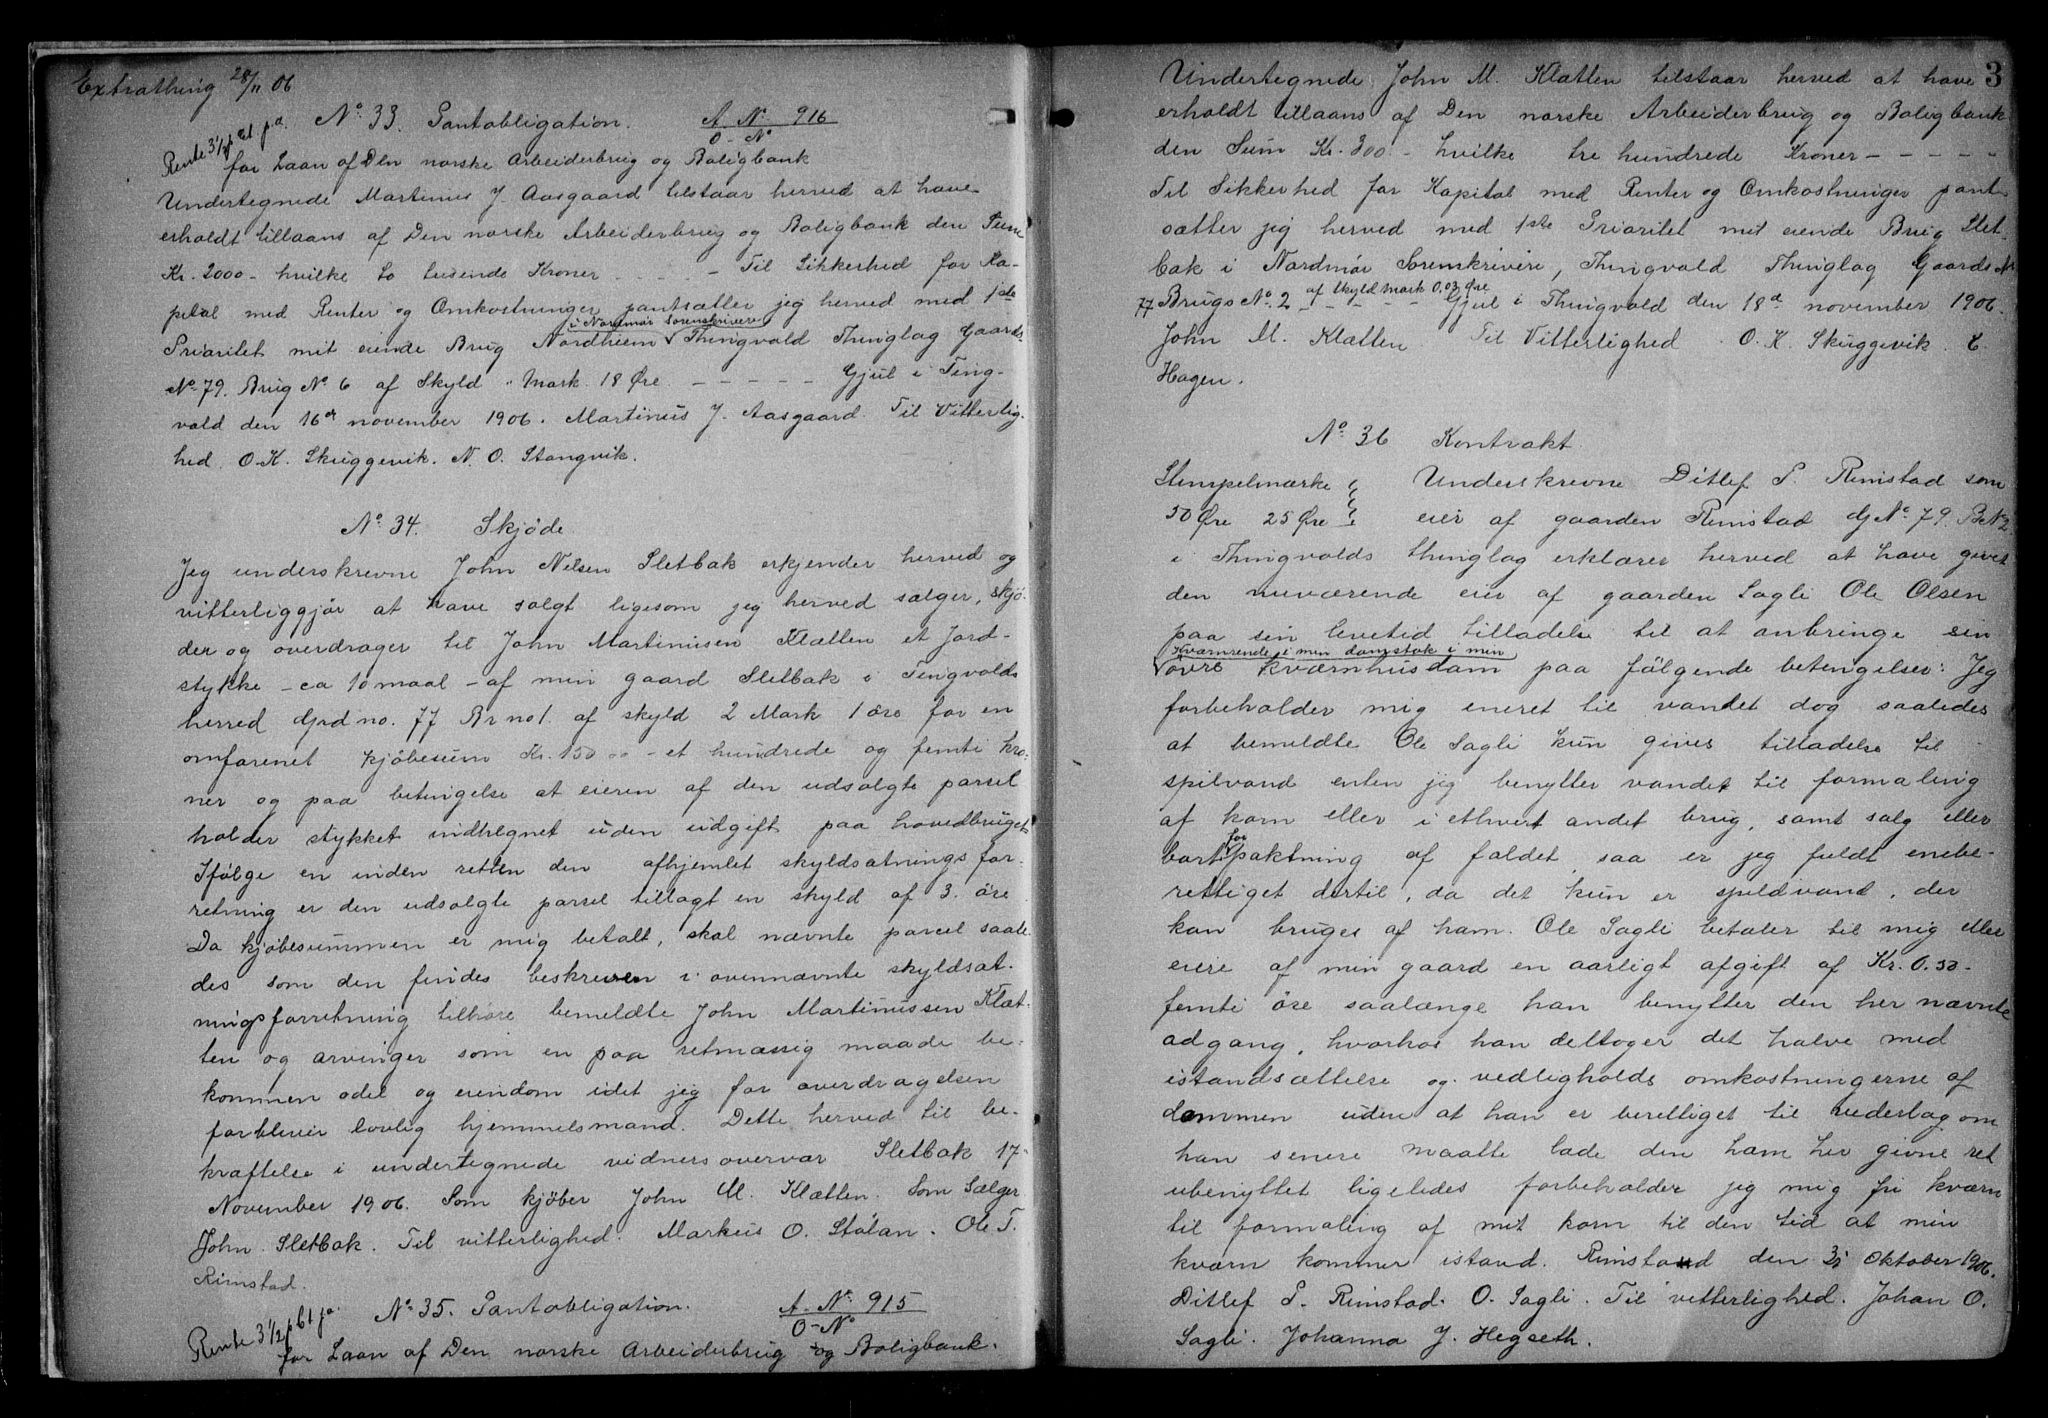 Extrathing 28/11 06
No 33. Pantobligation. A. No 916
O - No
Rente 3 1/2 pCt pa.
for Laan af Den norske Arbeiderbrug og Boligbank
Undertegnede Martinus J. Aasgaard tilstaar herved at have
erholdt tillaans af Den norske Arbeiderbrug og Boligbank den Sum
Kr. 2000 - hvilke to tusende Kroner - - - - Til Sikkerhed for Ka-
pital med Renter og Omkostninger pantsætter jeg herved med 1ste
i Nordmør Sorenskriveri
Prioritet mit eiende Brug Nordheim Thingvold Thinglag Gaards
No 79. Brug No 6 af Skyld " Mark 18 Øre - - - - - Gjul i Ting-
vold den 16de november 1906. Martinus J. Aasgaard. Til Vitterlig-
hed. O. K. Skuggevik. N. O. Stangvik.
No 34. Skjøde
Jeg underskrevne John Nelsen Sletbak erkjender herved og
vitterliggjør at have solgt ligesom jeg herved sælger, skjø-
der og overdrager til John Martinusen Klætten et Jord-
stykke - ca 10 maal - af min gaard Sletbak i Tingvolds
herred Gard no. 77 Br no 1. af skyld 2 Mark 1 øre for en
omforenet kjøbesum Kr. 150 00 - et hundrede og femti kro-
ner og paa betingelse at eieren af den udsolgte parsel
holder stykket indhegnet uden udgift paa hovedbruget.
Ifølge en inden retten den afhjemlet skyldsætningsfor-
retning er den udsolgte parsel tillagt en skyld af 3. øre
Da kjøbesummen er mig betalt, skal nævnte parcel saale-
des som den findes beskreven i ovennævnte skyldsæt-
ningsforretning tilhøre bemeldte John Martinussen Klæt-
ten og arvinger som en paa retmæssig maade be-
kommen odel og eiendom idet jeg for overdragelsen
forbliver lovlig hjemmelsmand. Dette herved til be-
kræftelse i undertegnede vidners overvær Sletbak 17-
November 1906. Som kjøber John M. Klætten. Som Sælger
John Sletbak. Til vitterlighed. Markus O. Stølan. Ole T.
Rimstad.
No 35. Pantobligation. A. No 915
O - No
Rente 3 1/2 pCt pa.
for Laan af Den norske Arbeiderbrug og Boligbank.
3
Undertegnede John M. Klætten tilstaar herved at have
erholdt tillaans af Den norske Arbeiderbrug og Boligbank
den Sum Kr. 300 - hvilke tre hundrede Kroner - - - - -
Til Sikkerhed for Kapital med Renter og Omkostninger pant-
sætter jeg herved med 1ste Prioritet mit eiende Brug Slet-
bak i Nordmør Sorenskriveri, Thingvold Thinglag Gaards No
af Skyld mark 0.03 Øre
77 Brugs No. 2 - - - - Gjul i Thingvold den 18d november 1906.
John M. Klætten. Til Vitterlighed O. K. Skuggevik. E.
Hagen.
No 36 Kontrakt
Stempelmærke Underskrevne Ditlef P. Rimstad som
50 Øre 25 Øre eier af gaarden Rimstad G No. 79. B No 2
i Thingvolds thinglag erklærer herved at have givet
den nuværende eier af gaarden Sagli Ole Olsen
paa sin levetid tilladelse til at anbringe sin
Kværnrende i min damstok i min
øvre kværnhusdam paa følgende betingelser: Jeg
forbeholder mig eneret til vandet dog saaledes
at bemeldte Ole Sagli kun gives tilladelse til
spilvand enten jeg benytter vandet til formaling
af korn eller i ethvert andet brug, samt salg eller
for
bortpaktning af faldet, saa er jeg fuldt enebe-
rettiget dertil, da det kun er spildvand, der
kan bruges af ham. Ole Sagli betaler til mig eller
eiere af min gaard en aarligt afgift af Kr. 0.50 -
femti øre saalænge han benytter den her nævnte
adgang, hvorhos han deltager det halve med
istandsættelse og vedligholds omkostningerne af
dammen uden at han er berettiget til vederlag om
han senere maatte lade den ham her givne ret
ubenyttet ligeledes forbeholder jeg mig fri kværn
til formaling af mit korn til den tid at min
kværn kommer istand. Rimstad den 31 Oktober 1906.
Ditlef P. Rimstad. O. Sagli. Til vitterlighed. Johan O.
Sagli. Johanna J. Hegseth.